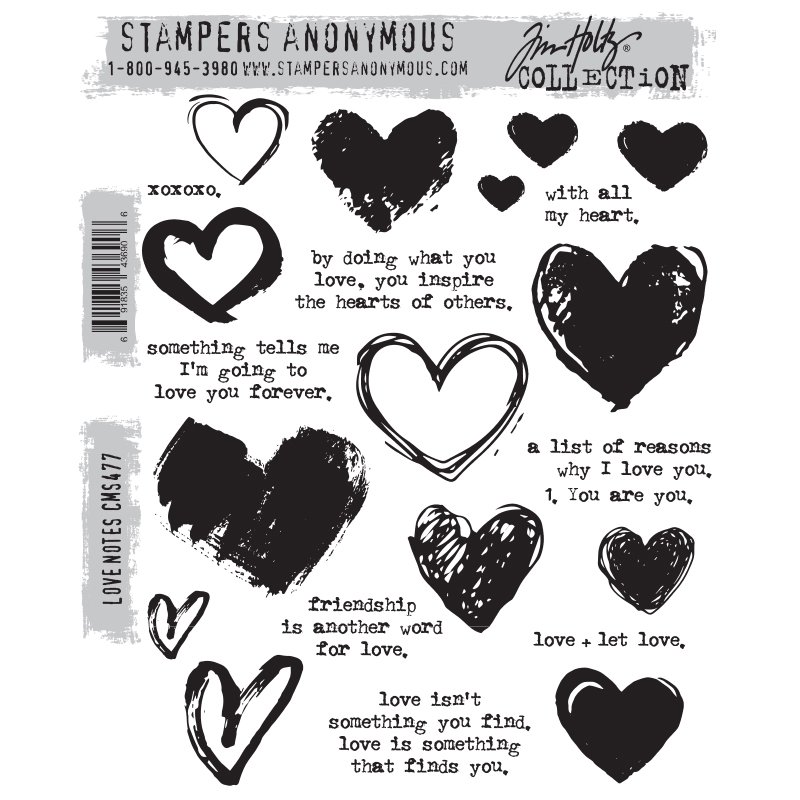 STAMPERS ANONYMOUS
1-800-945-3980 WWW.STAMPERSANONYMOUS.COM
Tim Holtz®
COLLECTION
xoxoxo.
with all
my heart.
by doing what you
love, you inspire
the hearts of others.
6 91835 43690 6
something tells me
I'm going to
love you forever.
a list of reasons
why I love you.
1. You are you.
LOVE NOTES CMS477
friendship
is another word
for love.
love + let love.
love isn't
something you find.
love is something
that finds you.